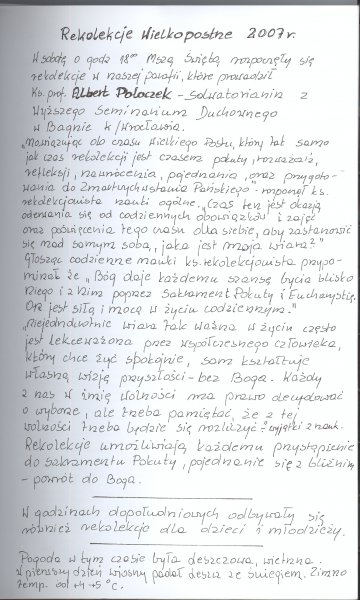 Rekolekcje Wielkopostne 2007r.
W sobotę o godz 18⁰⁰ Mszą Świętą rozpoczęły się
rekolekcje w naszej parafii, które prowadził
Ks. prof. Albert Połoczek - Salwatorianin z
Wyższego Seminarium Duchownego
w Bagnie k/Wrocławia.
"Nawiązując do czasu Wielkiego Postu, który tak samo
jak czas rekolekcji jest czasem pokuty, rozważań,
refleksji, nawrócenia, pojednania, oraz przygoto-
wania do Zmartwychwstania Pańskiego" - mówił ks.
rekolekcjonista nauki ogólne. "Czas ten jest okazją
oderwania się od codziennych obowiązków i zajęć
oraz poświęcenia tego czasu dla siebie, aby zastanowić
się nad samym sobą, jaka jest moja wiara?"
Głosząc codzienne nauki ks. rekolekcjonista przypo-
minał że "Bóg daje każdemu szansę bycia blisko
Niego i z Nim poprzez Sakrament Pokuty i Eucharystię.
Ona jest siłą i mocą w życiu codziennym."
"Niejednokrotnie wiara tak ważna w życiu często
jest lekceważona przez współczesnego człowieka,
który chce żyć spokojnie, sam kształtuje
własną wizję przyszłości - bez Boga. Każdy
z nas w imię wolności ma prawo decydować
o wyborze, ale trzeba pamiętać, że z tej
wolności trzeba będzie się rozliczyć" - wyjątki z nauk.
Rekolekcje umożliwiają każdemu przystąpienie
do sakramentu Pokuty, pojednanie się z bliźnim
- powrót do Boga.
W godzinach dopołudniowych odbywały się
również rekolekcje dla dzieci i młodzieży.
Pogoda w tym czasie była deszczowa, wietrzna.
W pierwszy dzień wiosny padał deszcz ze śniegiem. Zimno
temp. od +4 → 5°C.